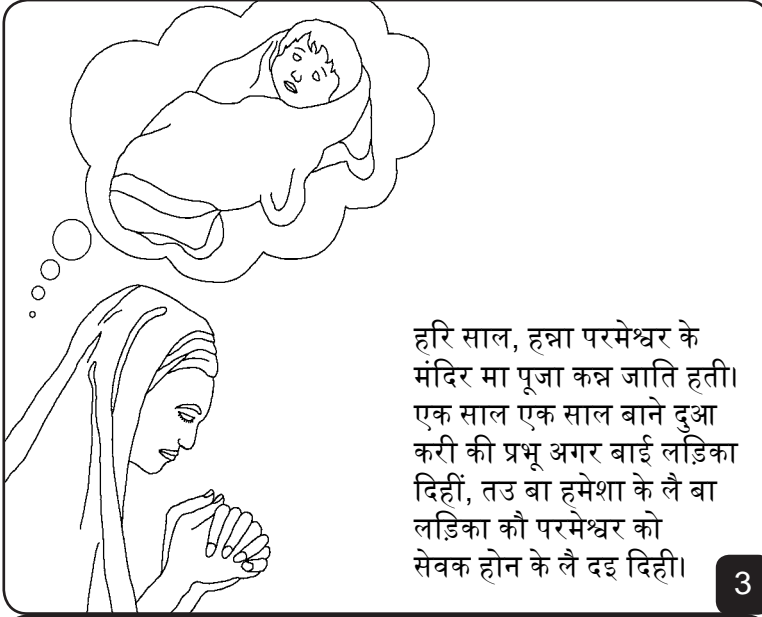 हरि साल, हन्ना परमेश्वर के
मंदिर मा पूजा कन्न जाति हती।
एक साल एक साल बाने दुआ
करी की प्रभू अगर बाई लड़िका
दिहीं, तउ बा हमेशा के लै बा
लड़िका कौ परमेश्वर को
सेवक होन के लै दइ दिही।
3